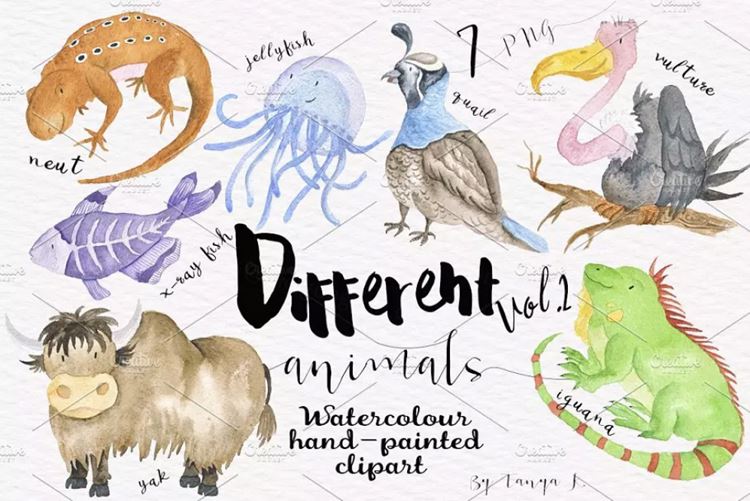 neut
jellyfish
quail
7 PNG
vulture
x-ray fish
Different
vol.2
animals
Watercolour
hand-painted
clipart
yak
iguana
By Tanya K.
Creative
Market